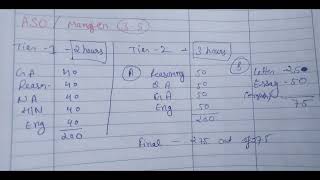 ASO / Manager (3-5)
Tier - 1 - 2 hours Tier - 2 - 3 hours
GA 40 A Reasoning 50 B Letter - 25
Reason - 40 QA 50 Essay - 50
NA 40 GA 50
HIN 40 Eng 50 75
Eng 40 200
200
Final - 275 out of 75